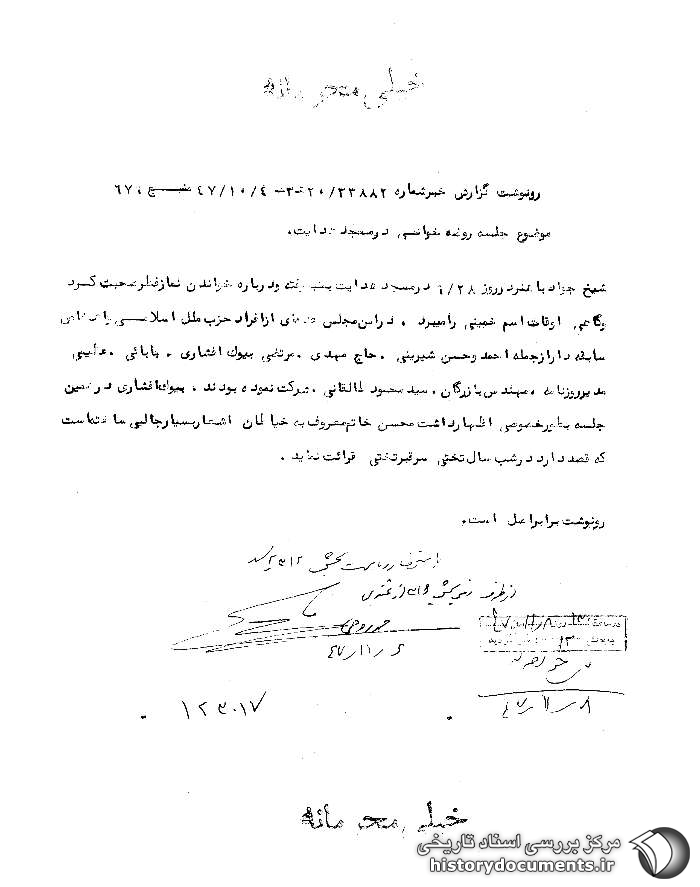 خیلی محرمانه
رونوشت گزارش خبر شماره ۲۰/۳۳۸۸۲ ۳- ۴۷/۱۰/۴
موضوع جلسه روضه خوانی در مسجد هدایت.
شیخ جواد باهنر در روز ۹/۲۸ در مسجد هدایت بمنبر رفته و درباره خواندن نماز فطر صحبت کرد
وگاهی اوقات اسم خمینی را میبرد . در این مجلس عده‌ای از افراد حزب ملل اسلامی با
سابقه دار از جمله احمد وحسن شیرینی . حاج مهدی . مرتضی بیوک افشاری . بابائی .
مدیر روزنامه . مهندس بازرگان . سید محمود طالقانی . شرکت نموده بودند . بیوک افشاری در همین
جلسه بطور خصوصی اظهار داشت محسن خاتم معروف به خیا لمان اشعار بسیار جالبی ساخته است
که قصد دارد در شب سال تختی سر قبر تختی قرائت نماید .
رونوشت برابر اصل است.
۴۷/۱۱/۶
۴۷/۱۱/۸
۱۲۳۰۱۷
خیلی محرمانه
مرکز بررسی اسناد تاریخی
historydocuments.ir